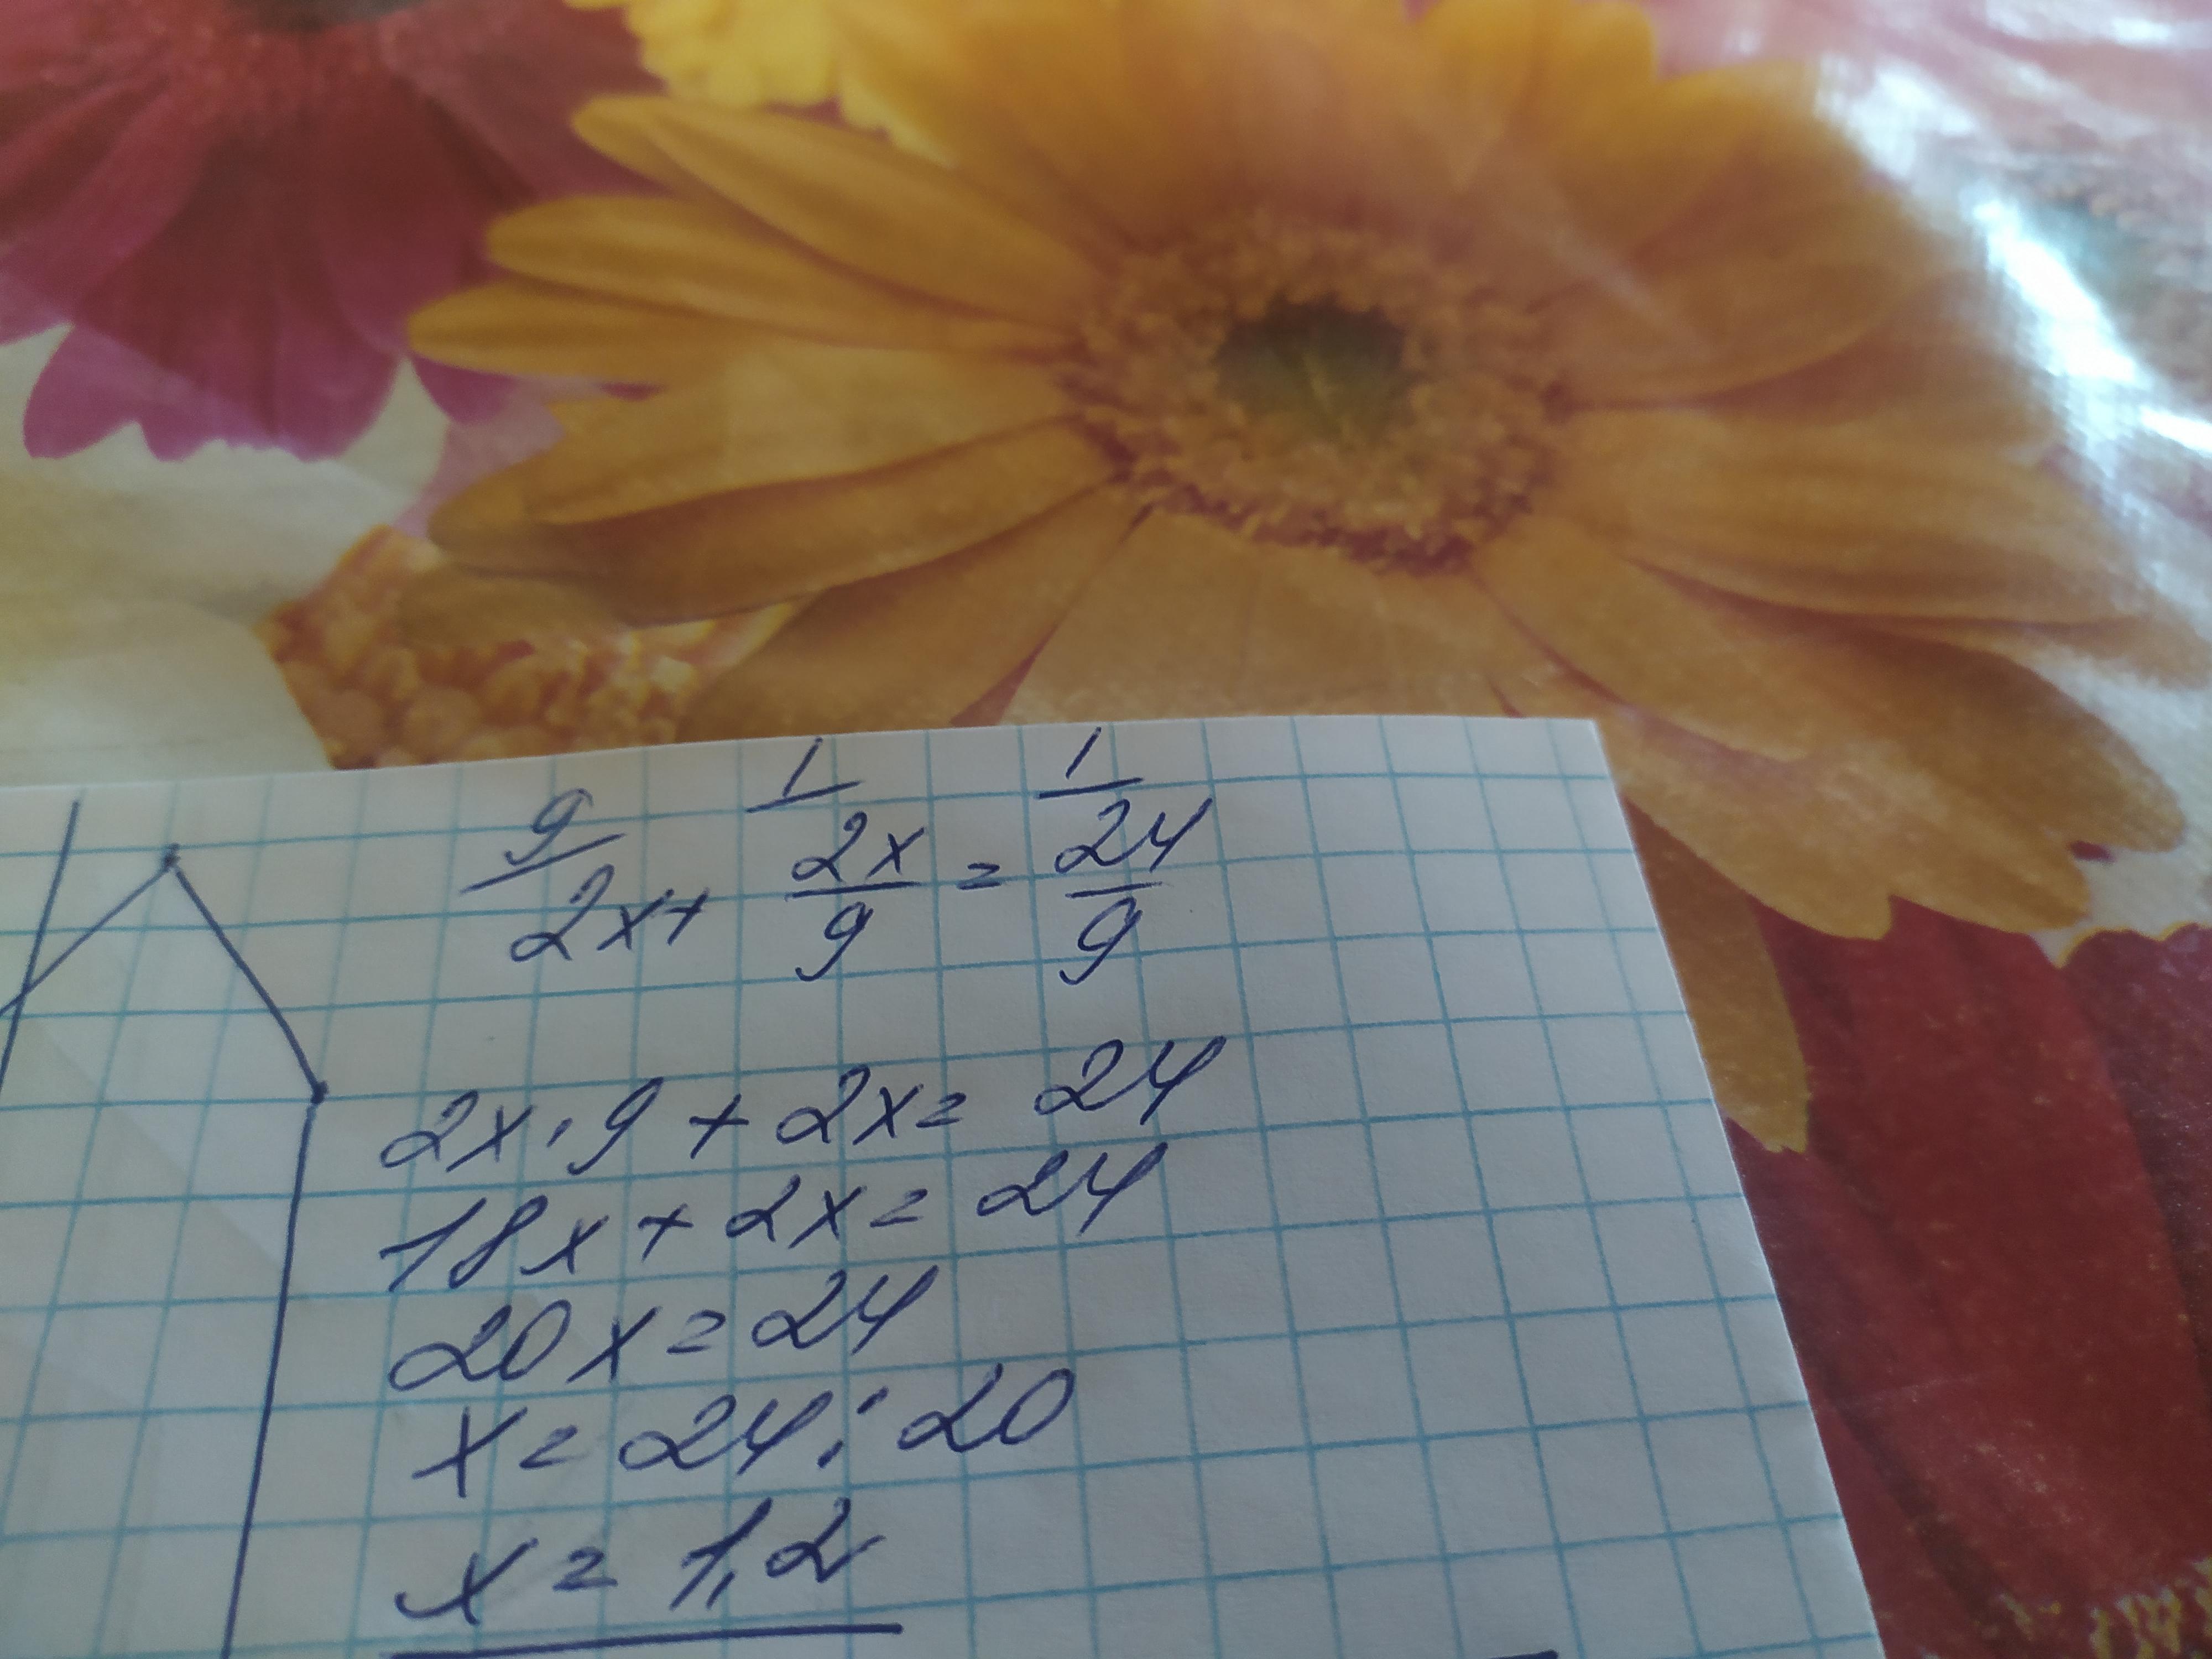 9/ 2x + 1/ 2x/9 = 1/ 24/9
2x · 9 + 2x = 24
18x + 2x = 24
20x = 24
x = 24 : 20
x = 1,2